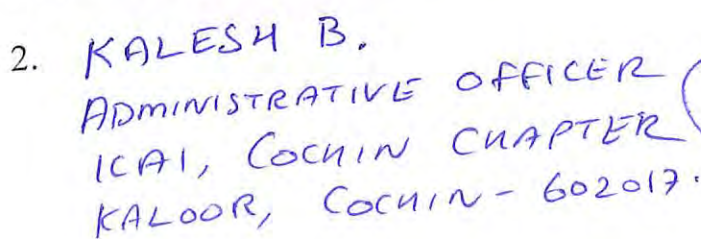 2. KALESH B.
ADMINISTRATIVE OFFICER
ICAI, COCHIN CHAPTER
KALOOR, COCHIN - 602017.